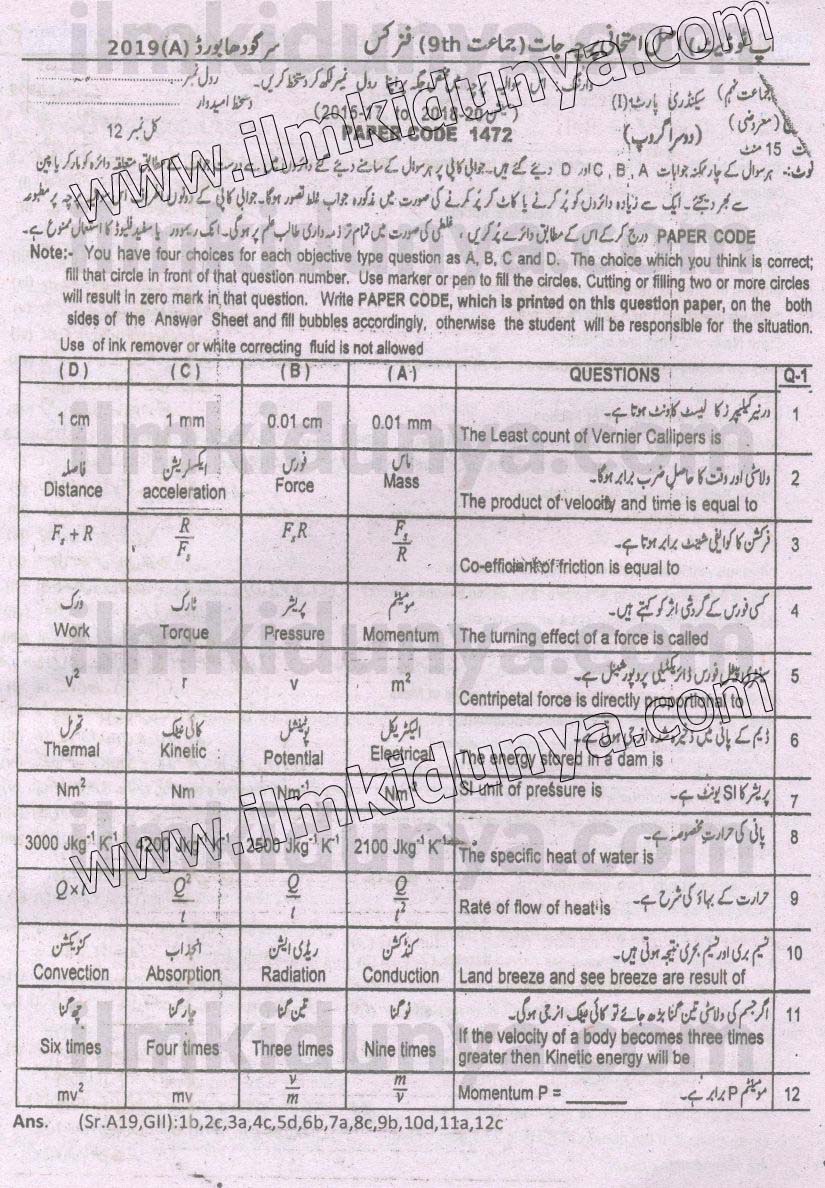 اپ ٹو ڈیٹ اصل امتحانی پرچہ جات (جماعت 9th) فزکس سرگودھا بورڈ 2019(A)
رول نمبر
(جماعت نہم) سیکنڈری پارٹ (I) دستخط امیدوار
(معروضی) (دوسرا گروپ) کل نمبر 12
15 منٹ
PAPER CODE 1472
نوٹ:- ہر سوال کے چار ممکنہ جوابات C , B , A اور D دیئے گئے ہیں۔ جوابی کاپی پر ہر سوال کے سامنے دیئے گئے دائروں میں سے درست جواب کے مطابق متعلقہ دائرہ کو مارکر یا پین
سے بھر دیجئے۔ ایک سے زیادہ دائروں کو پُر کرنے یا کاٹ کر پُر کرنے کی صورت میں مذکورہ جواب غلط تصور ہوگا۔ جوابی کاپی کے دونوں پرچہ پر مطبوعہ
PAPER CODE درج کر کے اس کے مطابق دائرے پُر کریں، غلطی کی صورت میں تمام تر ذمہ داری طالب علم پر ہوگی۔ انک ریموور یا سفید فلیوڈ کا استعمال ممنوع ہے۔
Note:- You have four choices for each objective type question as A, B, C and D. The choice which you think is correct;
fill that circle in front of that question number. Use marker or pen to fill the circles. Cutting or filling two or more circles
will result in zero mark in that question. Write PAPER CODE, which is printed on this question paper, on the both
sides of the Answer Sheet and fill bubbles accordingly, otherwise the student will be responsible for the situation.
Use of ink remover or white correcting fluid is not allowed
(D) (C) (B) (A) QUESTIONS Q-1
ورنیئر کیلیپرز کا لیسٹ کاؤنٹ ہوتا ہے۔ 1
1 cm 1 mm 0.01 cm 0.01 mm The Least count of Vernier Callipers is
فاصلہ ایکسلریشن فورس ماس ولاسٹی اور وقت کا حاصل ضرب برابر ہوگا۔ 2
Distance acceleration Force Mass The product of velocity and time is equal to
فرکشن کا کوایفی شینٹ برابر ہوتا ہے۔ 3
F_s + R R/F_s F_s R F_s/R Co-efficient of friction is equal to
ورک ٹارک پریشر مومینٹم کسی فورس کے گردشی اثر کو کہتے ہیں۔ 4
Work Torque Pressure Momentum The turning effect of a force is called
سینٹری پیٹل فورس ڈائریکٹلی پروپورشنل ہے۔ 5
v² r v m² Centripetal force is directly proportional to
تھرمل کائی نیٹک پوٹینشل الیکٹریکل ڈیم کے پانی میں ذخیرہ شدہ انرجی ہوتی ہے۔ 6
Thermal Kinetic Potential Electrical The energy stored in a dam is
Nm² Nm Nm⁻¹ Nm⁻² SI unit of pressure is پریشر کا SI یونٹ ہے۔ 7
پانی کی حرارت مخصوصہ ہے۔ 8
3000 Jkg⁻¹K⁻¹ 4200 Jkg⁻¹K⁻¹ 2500 Jkg⁻¹K⁻¹ 2100 Jkg⁻¹K⁻¹ The specific heat of water is
Q×t Q²/t Q/t Q/t² Rate of flow of heat is حرارت کے بہاؤ کی شرح ہے۔ 9
کنویکشن انجذاب ریڈی ایشن کنڈکشن نسیم بری اور نسیم بحری نتیجہ ہوتی ہیں۔ 10
Convection Absorption Radiation Conduction Land breeze and see breeze are result of
چھ گنا چار گنا تین گنا نو گنا اگر جسم کی ولاسٹی تین گنا بڑھ جائے تو کائی نیٹک انرجی ہوگی۔ 11
Six times Four times Three times Nine times If the velocity of a body becomes three times
greater then Kinetic energy will be
mv² mv v/m m/v Momentum P = ______ مومینٹم P برابر ہے۔ 12
Ans. (Sr.A19,GII):1b,2c,3a,4c,5d,6b,7a,8c,9b,10d,11a,12c
www.ilmkidunya.com
www.ilmkidunya.com
ilmkidunya.com
ilmkidunya.com
ilmkidunya.com
ilmkidunya.com
ilmkidunya.com